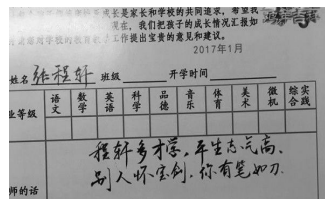 成长是家长和学校的共同追求，希望我
现在，我们把孩子的成长情况汇报如
对学校的教育教学工作提出宝贵的意见和建议。
2017年1月
姓名 张程轩 班级 开学时间
业等级 语文 数学 英语 科学 品德 音乐 体育 美术 微机 综合实践
程轩多才学，平生志气高。
别人怀宝剑，你有笔如刀.
师的话